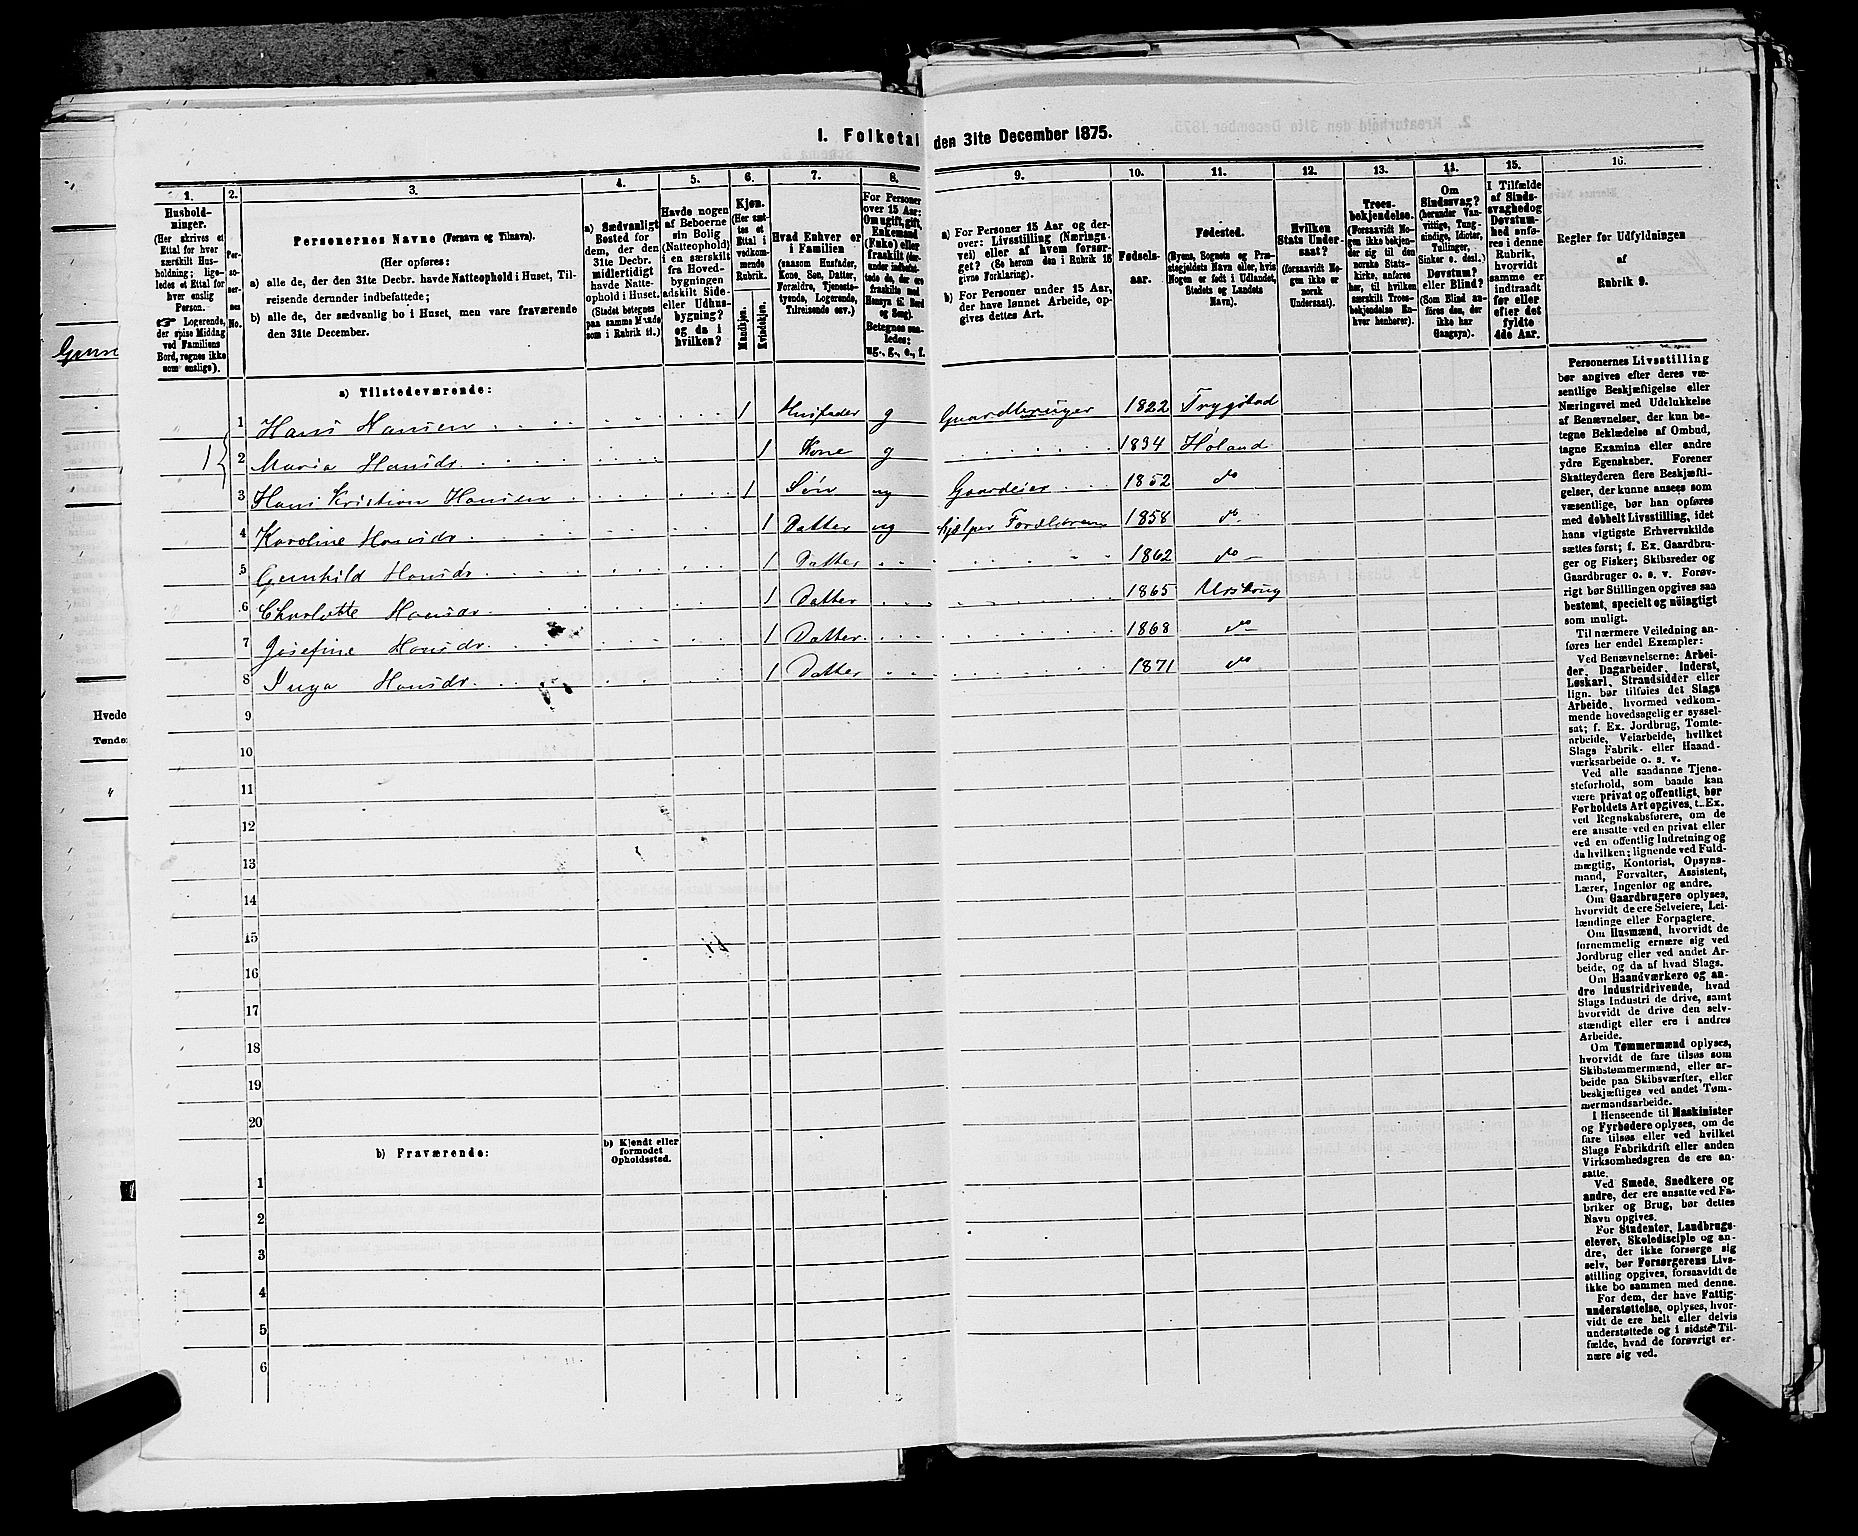 1. Folketal den 31te December 1875.
1.
2.
3.
4.
5.
6.
7.
8.
9.
10.
11.
12.
13.
14.
15.
16.
Husholdninger.
(Her skrives et
Ettal for hver
særskilt Husholdning;
ligeledes et Ettal for
hver enslig
Person.
☞ Logerende,
der spise Middag
ved Familiens
Bord, regnes ikke
som enslige).
Personernes No.
Personernes Navne (Fornavn og Tilnavn).
(Her opføres:
a) alle de, der den 31te Decbr. havde Natteophold i Huset, Tilreisende derunder indbefattede;
b) alle de, der sædvanlig bo i Huset, men vare fraværende
den 31te December.
a) Sædvanligt
Bosted for
dem, der den
31te Decbr.
midlertidigt
havde Natteophold i Huset.
(Stedet betegnes
paa samme Maade
som i Rubrik 11.)
Havde nogen
af Beboerne
sin Bolig
(Natteophold)
i en særskilt
fra Hovedbygningen
adskilt Side-
eller Udhusbygning?
og da i
hvilken?
Kjøn.
(Her sættes et
Ettal i
vedkommende
Rubrik.
Mandkjøn.
Kvindekjøn.
Hvad Enhver er
i Familien
(saasom Husfader,
Kone, Søn, Datter,
Forældre, Tjenestetyende, Logerende,
Tilreisende osv.)
For Personer
over 15 Aar:
Om ugift, gift,
Enkemand
(Enke) eller
fraskilt
Betegnes saaledes:
ug., g., e., f.
a) For Personer 15 Aar og derover: Livsstilling (Næringsvei) eller af hvem forsørget? (Se herom den i Rubrik 16
givne Forklaring).
b) For Personer under 15 Aar,
der have lønnet Arbeide, opgives dettes Art.
Fødselsaar.
Fødested.
(Byens, Sognets og Præstegjeldets Navn eller, hvis
Nogen er født i Udlandet,
Stedets og Landets
Navn).
Hvilken
Stats Undersaat?
(forsaavidt Nogen ikke er
norsk
Undersaat).
Troesbekjendelse.
(Forsaavidt Nogen ikke bekjender sig til den
norske Statskirke, anføres
her, til hvilken
særskilt Troesbekjendelse Enhver henhører).
Om
Sindssvag?
(herunder Vanvittige, Tungsindige, Idioter,
Tullinger,
Sinker o. desl.)
Døvstum?
eller Blind?
(Som Blind anføres den, der
ikke har
Gangsyn).
I Tilfælde
af Sindssvaghed og
Døvstumhed anføres i denne
Rubrik,
hvorvidt
samme er
indtraadt
før eller
efter det
fyldte
4de Aar.
Regler for Udfyldningen
af
Rubrik 9.
a) Tilstedeværende:
1 1 Hans Hansen 1 Husfader g Gaardbruger 1822 Trygstad
2 Maria Hansdr. 1 Kone g 1834 Høland
3 Hans Kristian Hansen 1 Søn ug Gaardeier 1852 do
4 Karoline Hansdr. 1 Datter ug hjelper Forældrene 1858 do
5 Gunhild Hansdr. 1 Datter " " 1862 do
6 Charlotte Hansdr. 1 Datter 1865 Urskoug
7 Josefine Hansdr. 1 Datter 1868 do
8 Inga Hansdr. 1 Datter 1871 do
9
10
11
12
13
14
15
16
17
18
19
20
b) Fraværende:
b) Kjendt eller
formodet
Opholdssted.
1
2
3
4
5
6
Personernes Livsstilling
bør angives efter deres væsentlige Beskjæftigelse eller
Næringsvei med Udelukkelse
af Benævnelser, der kun betegne Beklædelse af Ombud,
tagne Examina eller andre
ydre Egenskaber. Forener
Skatteyderen flere Beskjæftigelser, der kunne ansees som
væsentlige, bør han opføres
med dobbelt Livsstilling, idet
hans vigtigste Erhvervskilde
sættes først; f. Ex. Gaardbruger og Fisker; Skibsreder og
Gaardbruger o. s. v. Forøvrigt bør Stillingen opgives saa
bestemt, specielt og nöiagtigt
som muligt.
Til nærmere Veiledning anføres her endel Exempler:
Ved Benævnelserne: Arbeider, Dagarbeider, Inderst,
Løskarl, Strandsidder eller
lign. bør tilføies det Slags
Arbeide, hvormed vedkommende hovedsagelig er sysselsat; f. Ex. Jordbrug, Tomtearbeide, Veiarbeide, hvilket
Slags Fabrik- eller Haandværksarbeide o. s. v.
Ved alle saadanne Tjenesteforhold, som baade kan
være privat og offentligt, bør
Forholdets Art opgives, t. Ex.
ved Regnskabsførere, om de
ere ansatte ved en privat eller
ved en offentlig Indretning og
da hvilken; lignende ved Fuldmægtig, Kontorist, Opsynsmand, Forvalter, Assistent,
Lærer, Ingeniør og andre.
Om Gaardbrugere oplyses,
hvorvidt de ere Selveiere, Leilændinge eller Forpagtere.
Om Husmænd, hvorvidt de
fornemmelig ernære sig ved
Jordbrug eller ved andet Arbeide, og da af hvad Slags.
Om Haandværkere og andre Industridrivende, hvad
Slags Industri de drive, samt
hvorvidt de drive den selvstændigt eller ere i andres
Arbeide.
Om Tømmermænd oplyses,
hvorvidt de fare tilsøs som
Skibstømmermænd, eller arbeide paa Skibsværfter, eller
beskjæftiges ved andet Tømmermandsarbeide.
I Henseende til Maskinister
og Fyrbødere oplyses, om de
fare tilsøs eller ved hvilket
Slags Fabrikdrift eller anden
Virksomhedsgren de ere ansatte.
Ved Smede, Snedkere og
andre, der ere ansatte ved Fabriker og Brug, bør dettes
Navn opgives.
For Studenter, Landbrugselever, Skoledisciple og andre, der ikke forsørge sig
selv, bør Forsørgerens Livsstilling opgives, forsaavidt de
ikke bo sammen med denne.
For dem, der have Fattigunderstøttelse, oplyses, hvorvidt de ere helt eller delvis
understøttede og i sidste Tilfælde, hvad de forøvrigt ernære sig ved.
Hvede
Tønder